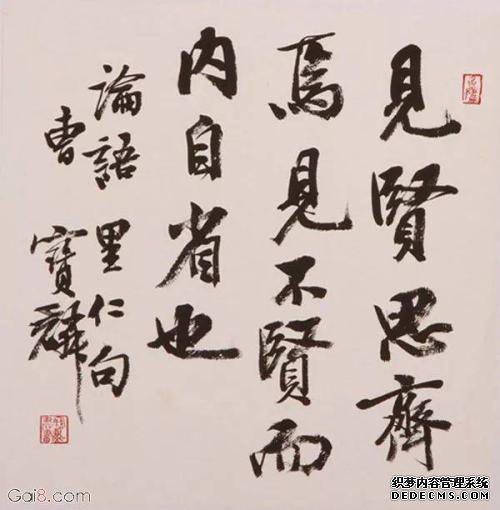 見賢思齊
焉見不賢而
内自省也
論語里仁句
曹寶麟
Gai8.com
织梦内容管理系统
DEDECMS.COM